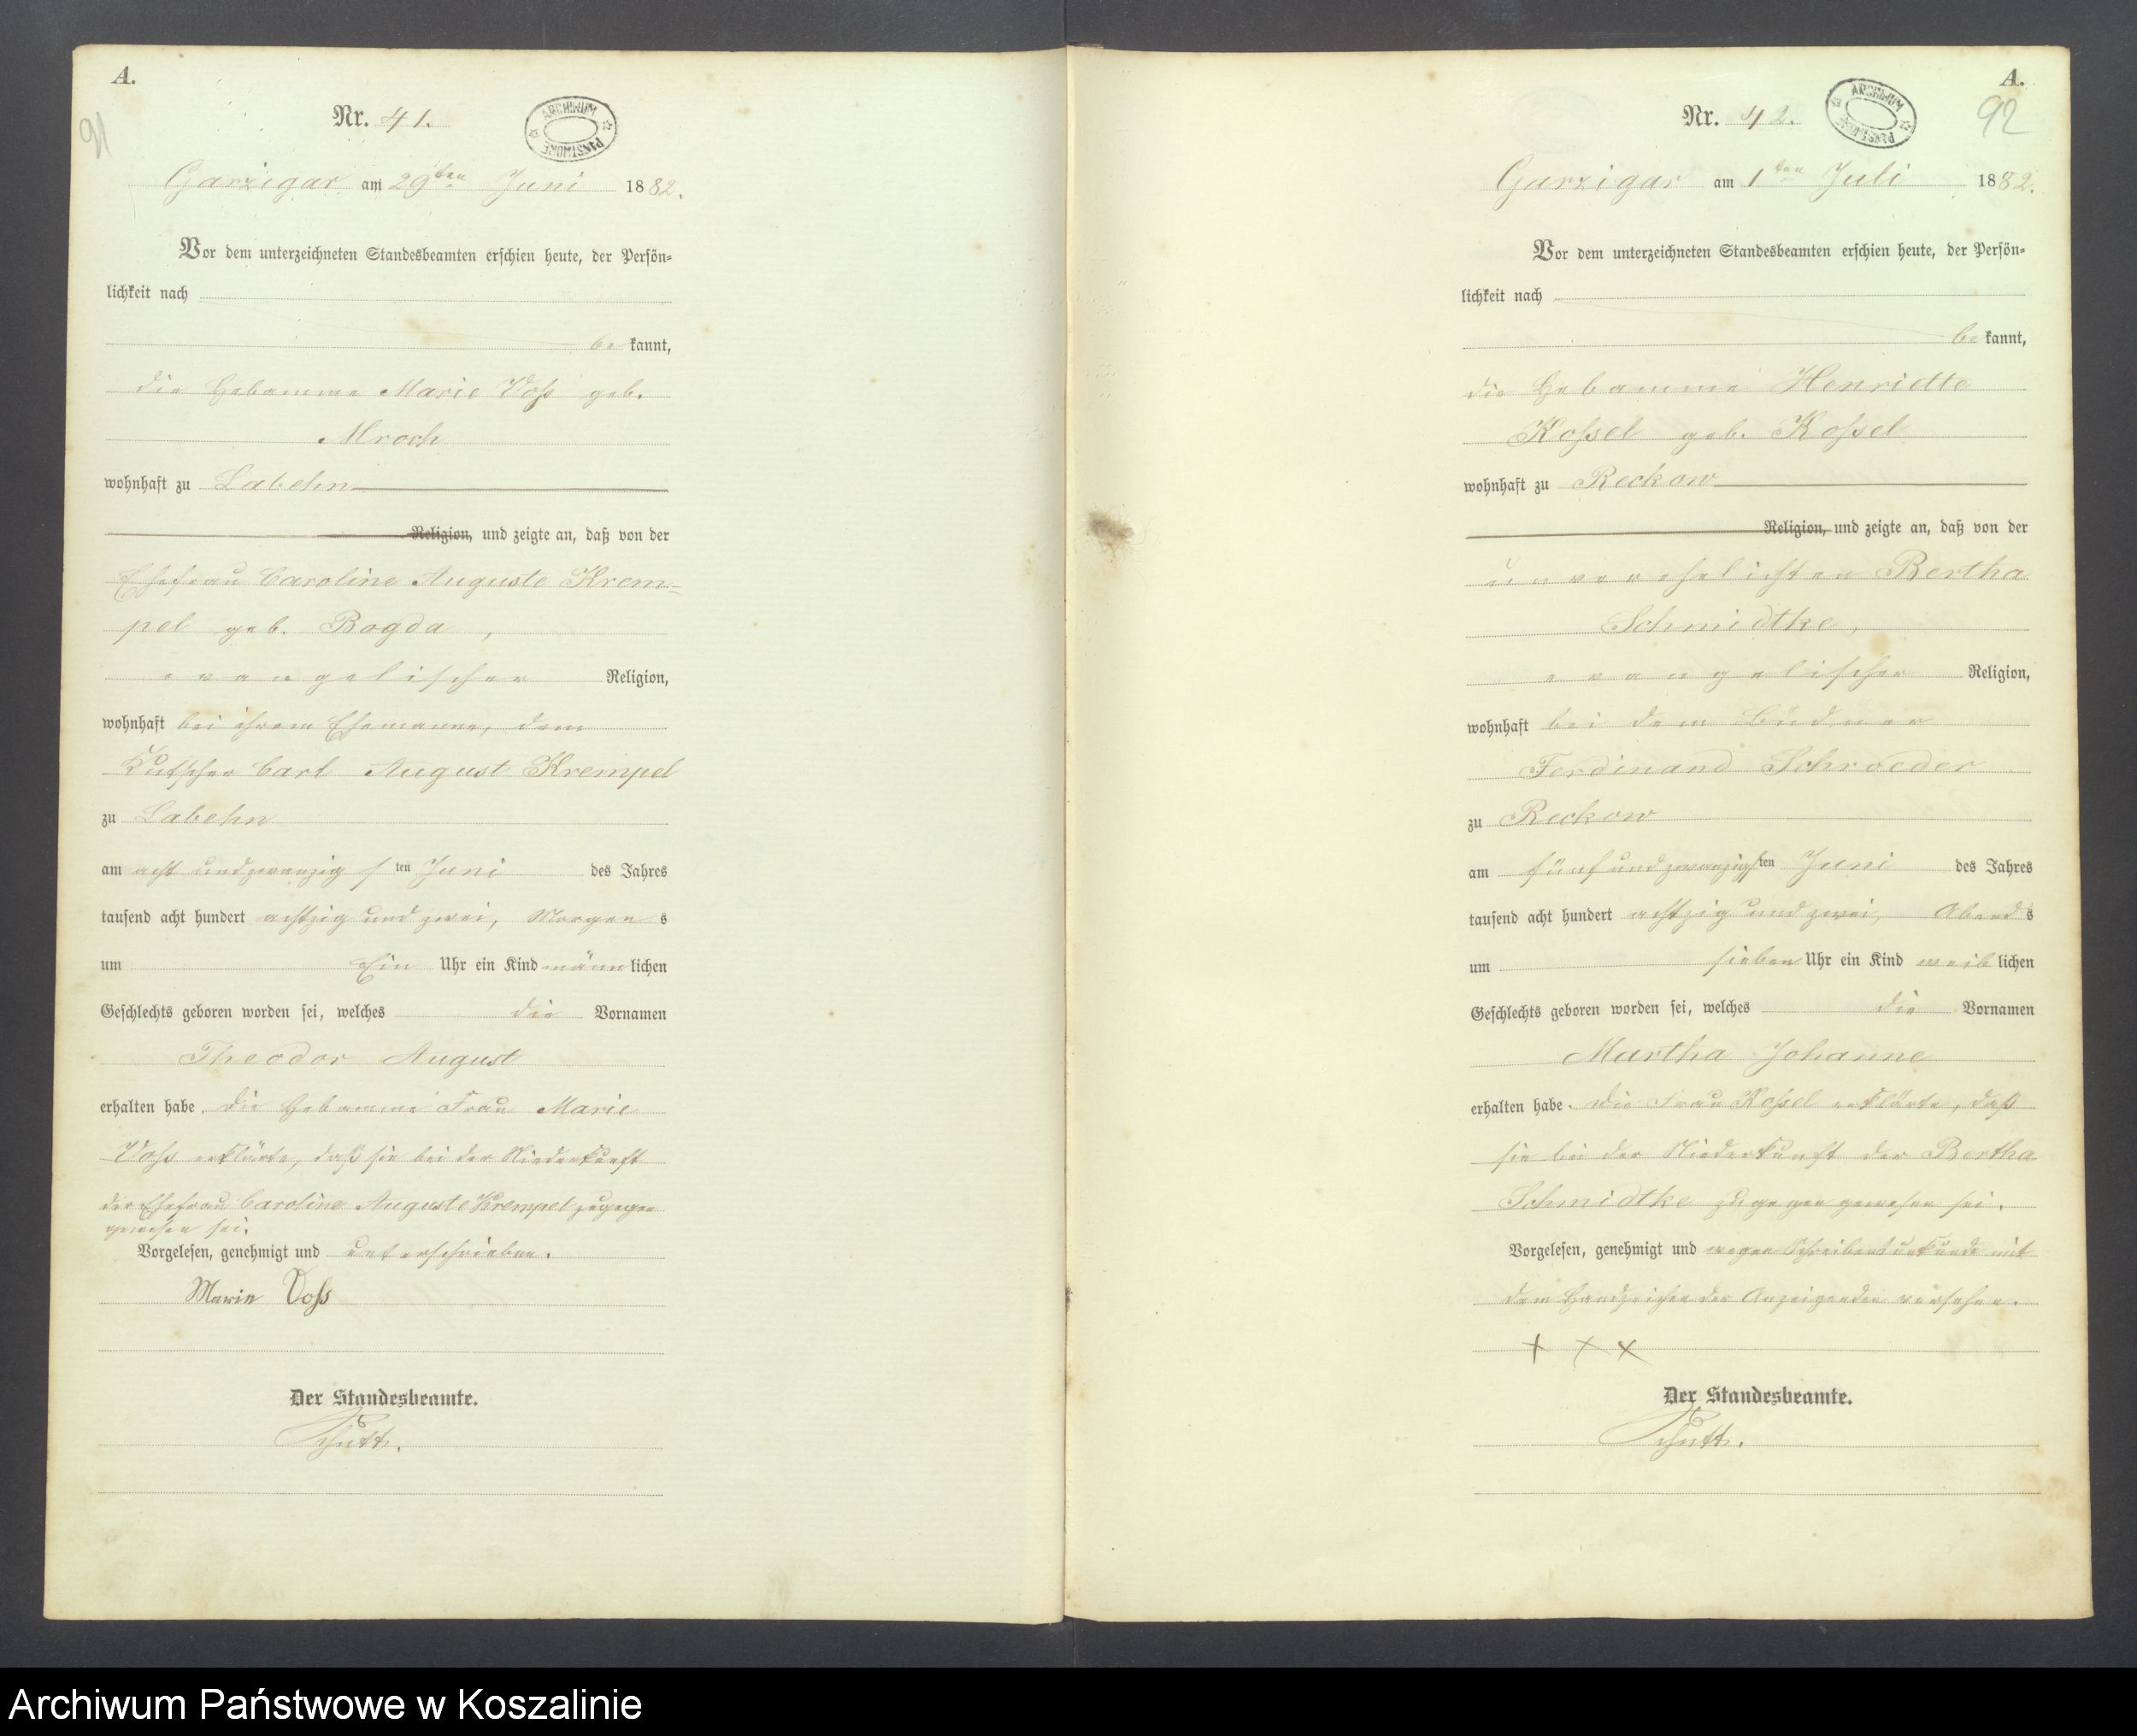 A.
91
Nr. 41.
ARCHIWUM PAŃSTWOWE
Garzigar am 29ten Juni 1882.
Vor dem unterzeichneten Standesbeamten erschien heute, der Persön=
lichkeit nach
be kannt,
die Hebamme Marie Voß geb.
Mroch
wohnhaft zu Labehn
Religion, und zeigte an, daß von der
Ehefrau Caroline Auguste Krem=
pel geb. Bogda,
evangelischer Religion,
wohnhaft bei ihrem Ehemanne, dem
Kutscher Carl August Krempel
zu Labehn
am acht und zwanzig sten Juni des Jahres
tausend acht hundert achtzig und zwei, Morgen s
um Ein Uhr ein Kind männ lichen
Geschlechts geboren worden sei, welches die Vornamen
Theodor August
erhalten habe. Die Hebamme Frau Marie
Voß erklärte, daß sie bei der Niederkunft
der Ehefrau Caroline Auguste Krempel zugegen
gewesen sei.
Vorgelesen, genehmigt und unterschrieben.
Marie Voß
Der Standesbeamte.
Schutt.
A.
92
Nr. 42.
ARCHIWUM PAŃSTWOWE
Garzigar am 1ten Juli 1882.
Vor dem unterzeichneten Standesbeamten erschien heute, der Persön=
lichkeit nach
be kannt,
die Hebamme Henriette
Koßel geb. Koßel
wohnhaft zu Reckow
Religion, und zeigte an, daß von der
unverehelichten Bertha
Schmidtke,
evangelischer Religion,
wohnhaft bei dem Büdner
Ferdinand Schroeder
zu Reckow
am fünf und zwanzigsten Juni des Jahres
tausend acht hundert achtzig und zwei, Abend s
um sieben Uhr ein Kind weib lichen
Geschlechts geboren worden sei, welches die Vornamen
Martha Johanne
erhalten habe. Die Frau Koßel erklärte, daß
sie bei der Niederkunft der Bertha
Schmidtke zugegen gewesen sei.
Vorgelesen, genehmigt und wegen Schreibensunkunde mit
dem Handzeichen der Anzeigenden versehen.
+ + +
Der Standesbeamte.
Schutt.
Archiwum Państwowe w Koszalinie